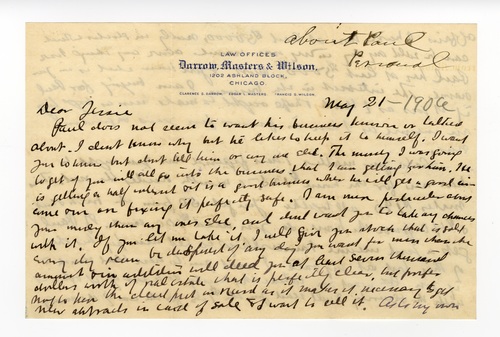 about Paul
Personal
LAW OFFICES
Darrow, Masters & Wilson,
1202 ASHLAND BLOCK,
CHICAGO
CLARENCE S. DARROW. EDGAR L. MASTERS. FRANCIS S. WILSON.
May 21 - 190
Dear Jessie
Paul does not seem to want his business known or talked
about. I dont know why but he likes to keep it to himself. I want
you to know but dont tell him or any one else. The money I was going
to get of you will all go into the business that I am getting for him. He
is getting a half interest in a good business where he will get a good
and am fixing it perfectly safe. I am more particular about
your money than any ones else and dont want you to take any chances
with it. If you let me take it, I will give you stock that is sold
every day can be disposed of any day you want for more than the
amount in addition will deed you at least seven thousand
dollars worth of real estate that is perfectly clear, but prefer
not to have the deed put on record as it makes it necessary to get
new abstracts in case of sale & I want to sell it. As to my own